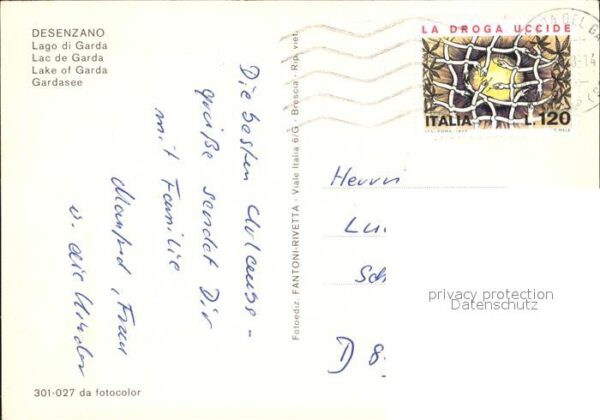 DESENZANO
Lago di Garda
Lac de Garda
Lake of Garda
Gardasee
Die besten Urlaubs-
grüße sendet Dir
mit Familie
Manfred, Frau
u. die Kinder
301-027 da fotocolor
Fotoediz. FANTONI-RIVETTA - Viale Italia 6/G - Brescia - Rip. viet.
LA DROGA UCCIDE
ITALIA L.120
Herrn
D 8
privacy protection
Datenschutz